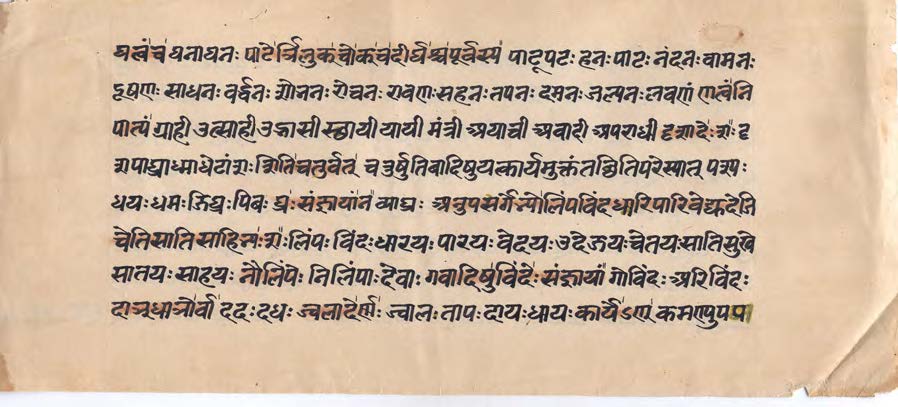 घत्वं च घनाघनः पाटेर्ञिलुक् चोक् च दीर्घश्च पूर्वस्य पाटूपटः हनः पाटः नंदनः वामनः
दूषणः साधनः वर्द्धनः शोभनः रोचनः रावणः सहनः तपनः दमनः जल्पनः लवणं णत्वं नि
पात्यं ग्राही उत्साही उद्भासी स्थायी यायी मंत्री अयाची अवादी अपराधी दृशादेः शः दृ
शपाघ्राध्माधेटां शः शिति चतुर्वत् चतुर्षु तिबादिषु यत्कार्यमुक्तं तच्छिति परे स्यात् पश्यः
धयः धमः जिघ्रः पिबः घ्रः संज्ञायां न व्याघ्रः अनुपसर्गेभ्यो लिंपविंदधारिपारिवेद्युदेजि
चेतिसातिसाहिभ्यः शः लिंपः विंदः धारयः पारयः वेदयः उदेजयः चेतयः साति सुखे
सातयः साहयः नौ लिंपेः निलिंपाः देवाः गवादिषु विंदेः संज्ञायां गोविंदः अरिविंदः
दाञ्धाञोर्वा ददः दधः ज्वलादेर्णः ज्वालः तापः दायः धायः कार्येऽण्